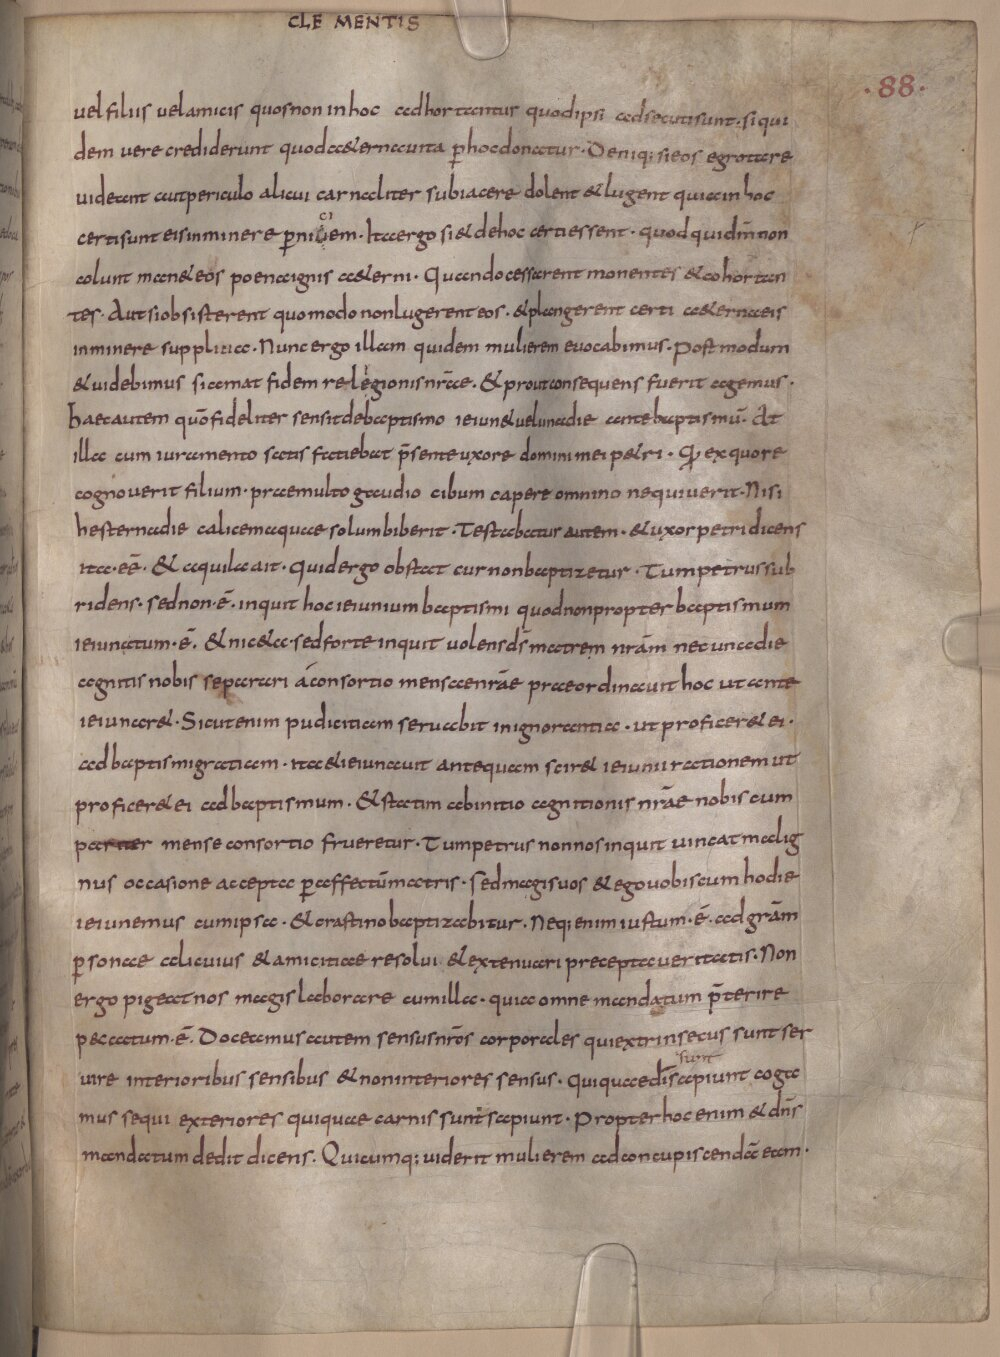 CLEMENTIS
·88·
uel filiis uel amicis quos non in hoc adhortantur quod ipsi adsecuti sunt · si qui
dem uere crediderunt quod aeterna uita p̱ hoc donatur · Deniq; si eos egrotare
uideant aut periculo alicui carnaliter subiacere dolent & lugent quia in hoc
certi sunt eis inminere p̱niciem · Ita ergo si & de hoc certi essent · quod qui dm̄ non
colunt man& eos poena ignis aeterni · Quando cessarent monentes & cohortan
tes · Aut si obsisterent quomodo non lugerent eos · & plangerent certi aeterna eis
inminere supplicia · Nunc ergo illam quidem mulierem euocabimus · Postmodum
& uidebimus si amat fidem relegionis nr̄ae · & prout consequens fuerit agemus ·
haec autem qūo fideliter sensit de baptismo ieiun& uel una die ante baptismū · At
illa cum iuramento satis faciebat p̄sente uxore domini mei petri · Q̱ ex quo re
cognouerit filium · prae multo gaudio cibum capere omnino nequiuerit · Nisi
hesterna die calicem aquae solum biberit · Testabatur autem · & uxor petri dicens
ita · eē · & aquila ait · quid ergo obstat cur non baptizetur · Tum petrus sub
ridens · sed non · ē · inquit hoc ieiunium baptismi quod non propter baptismum
ieiunatum · ē · & niceta · sed forte inquit uolens dš matrem nr̄am nec una die
agnitis nobis separari á consortio mensae nr̄ae praeordinauit hoc ut ante
ieiunar& · Sicut enim pudicitiam seruabit in ignorantia · ut proficer& ei ·
ad baptismi gratiam · ita & ieiunauit antequam scir& ieiunii rationem ut
proficer& ei ad baptismum · & statim ab initio agnitionis nr̄ae nobiscum
pariter mense consortio frueretur · Tum petrus non nos inquit uincat malig
nus occasione accepta p̱ affectū matris · sed magis uos & ego uobiscum hodie
ieiunemus cum ipsa · & crastino baptizabitur · Neq; enim iustum · ē · ad gr̄am
p̱sonae alicuius & amicitiae resolui & extenuari precepta ueritatis · Non
ergo pigeat nos magis laborare cum illa · quia omne mandatum p̄terire
peccatum · ē · Doceamus autem sensus nr̄os corporales qui extrinsecus sunt ser
uire interioribus sensibus & non interiores sensus · qui quae dī sunt sapiunt coga
mus sequi exteriores qui quae carnis sunt sapiunt · Propter hoc enim & dn̄s
mandatum dedit dicens · Quicumq; uiderit mulierem ad concupiscendā eam ·